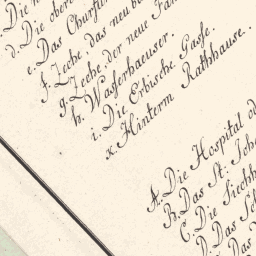 Die
d. Die obere
e. Das Churfür
f. Zeche, das neu
g. Zeche, der neue
h. Wasserhaeuser.
i. Die Erbische Gasse.
k. Hinterm Rathhause.
A. Die Hospital od
B. Das St: Joha
C. Die Siechh
D. Das Sch
Das